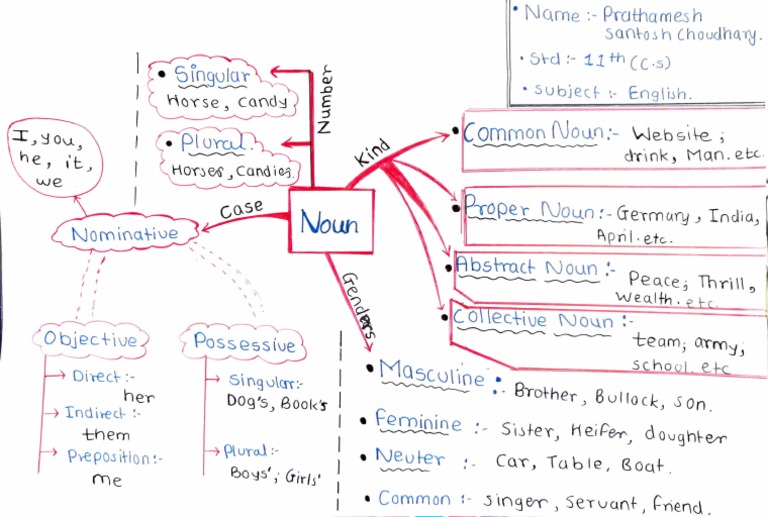 • Name :- Prathamesh
Santosh Choudhary.
• Std :- 11th (C.s)
• Subject :- English.
• Singular
Horse, Candy
• Plural.
Horses, Candies.
Number
I, you,
he, it,
we
Nominative
Case
Noun
Kind
Genders
• Common Noun:- Website;
drink, Man. etc.
• Proper Noun:- Germany, India,
April. etc.
• Abstract Noun:- Peace; Thrill,
Wealth. etc.
• Collective Noun:-
team; army;
school. etc
Objective
Direct:-
her
Indirect:-
them
Preposition:-
me
Possessive
Singular:-
Dog's, Book's
Plural:-
Boys'; Girls'
• Masculine :- Brother, Bullock, son.
• Feminine :- Sister, Heifer, doughter
• Neuter :- Car, Table, Boat.
• Common :- singer, Servant, friend.